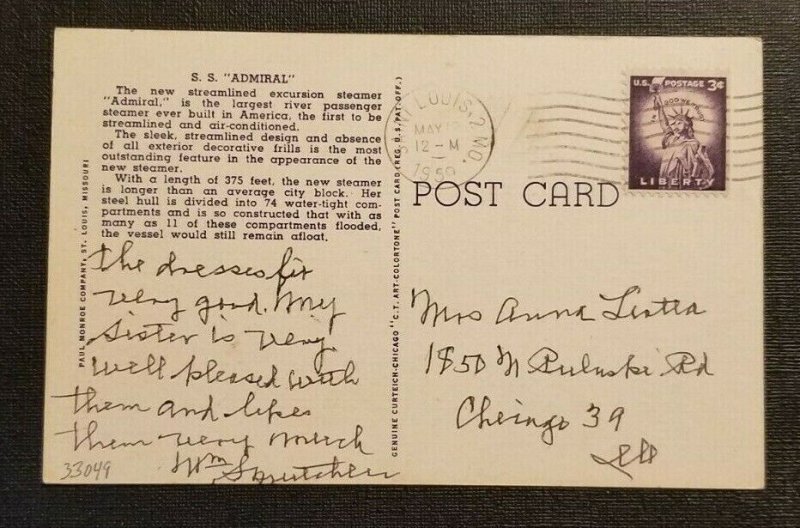 S. S. "ADMIRAL"
The new streamlined excursion steamer
"Admiral," is the largest river passenger
steamer ever built in America, the first to be
streamlined and air-conditioned.
The sleek, streamlined design and absence
of all exterior decorative frills is the most
outstanding feature in the appearance of the
new steamer.
With a length of 375 feet, the new steamer
is longer than an average city block. Her
steel hull is divided into 74 water-tight com-
partments and is so constructed that with as
many as 11 of these compartments flooded,
the vessel would still remain afloat.
the dresses fit
very good. My
sister is very
well pleased with
them and likes
them very much
Wm
33049
PAUL MONROE COMPANY, ST. LOUIS, MISSOURI
GENUINE CURTEICH-CHICAGO "C.T. ART-COLORTONE" POST CARD (REG. U.S. PAT. OFF.)
ST LOUIS, 2 MO.
MAY
12-M
1959
U.S. POSTAGE 3¢
IN GOD WE TRUST
LIBERTY
POST CARD
Mrs Anna
1850 N Pulaski Rd
Chicago 39
Ill